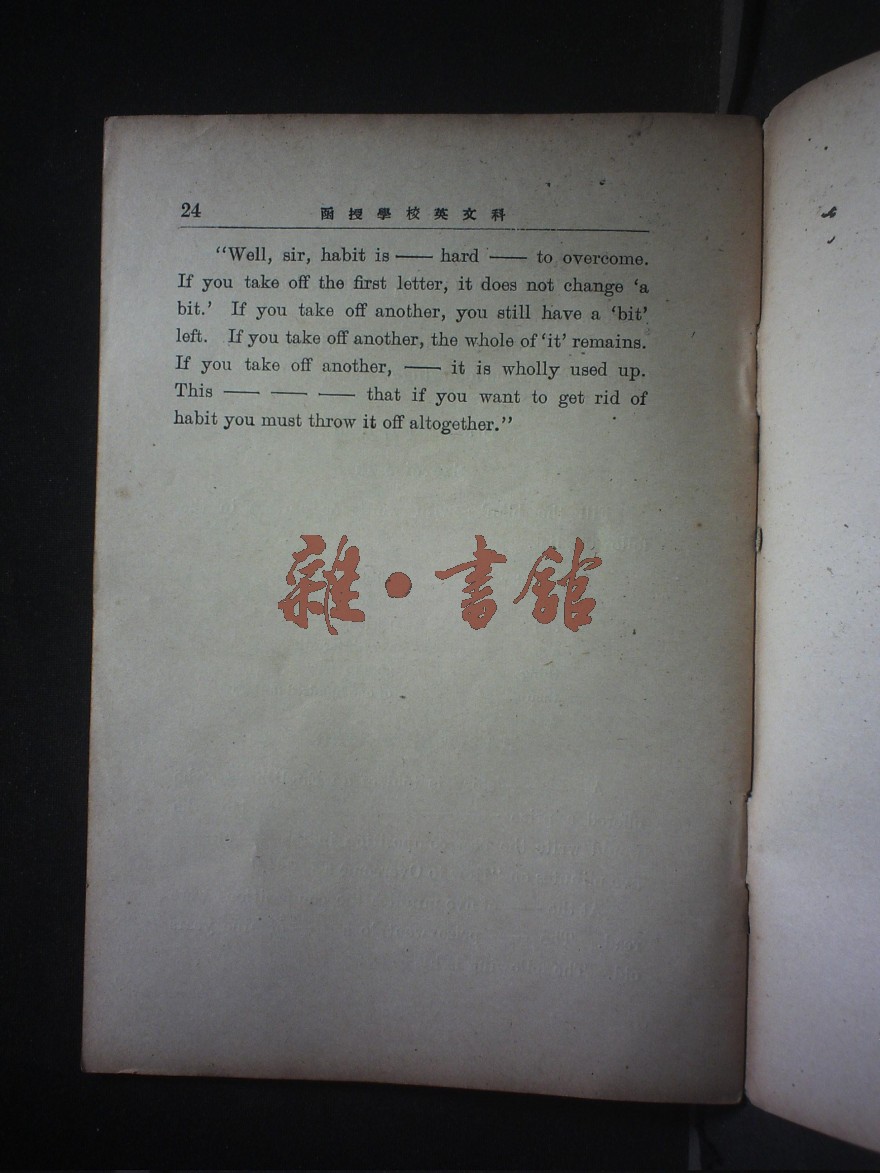 24 函授學校英文科
“Well, sir, habit is —— hard —— to overcome.
If you take off the first letter, it does not change ‘a
bit.’ If you take off another, you still have a ‘bit’
left. If you take off another, the whole of ‘it’ remains.
If you take off another, —— it is wholly used up.
This —— —— —— that if you want to get rid of
habit you must throw it off altogether.”
雜•書館